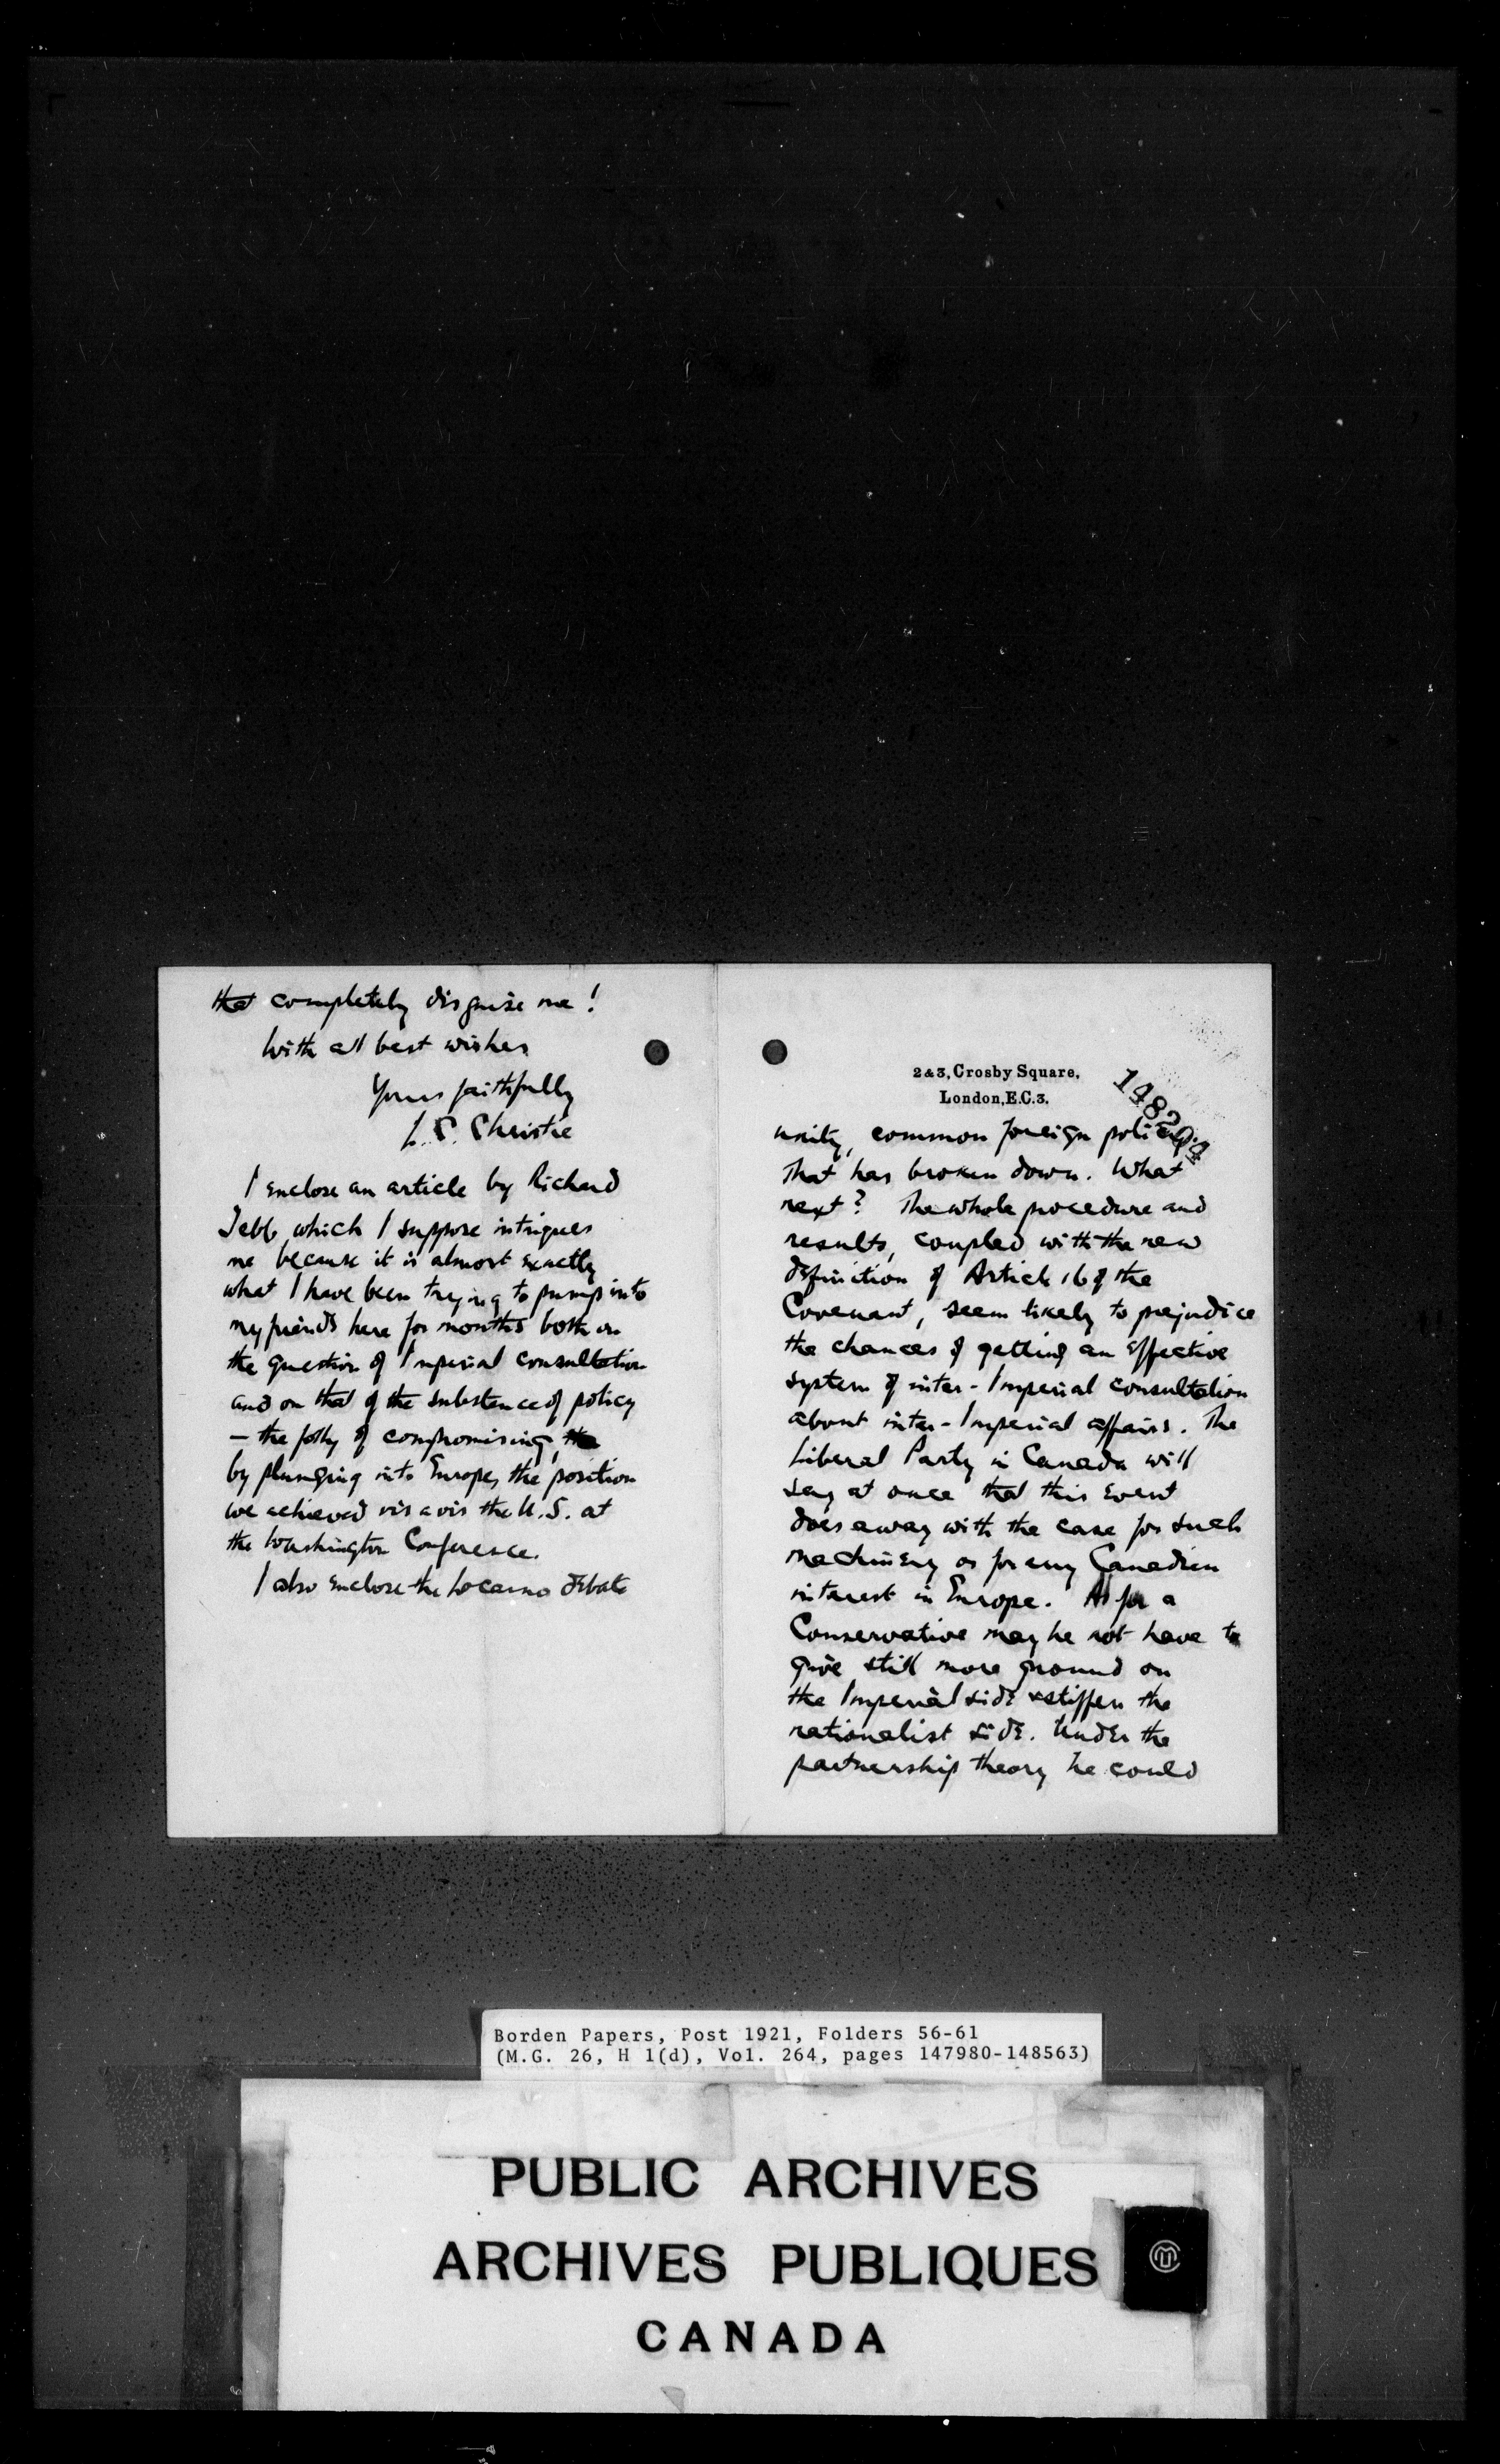 that completely disguise me!
With all best wishes
Yours faithfully
L. C. Christie
I enclose an article by Richard
Jebb, which I suppose intrigues
me because it is almost exactly
what I have been trying to pump into
my friends here for months both on
the question of Imperial consultation
and on that of the substance of policy
— the folly of compromising, the
by plunging into Europe, the position
we achieved vis a vis the U.S. at
the Washington Conference.
I also enclose the Locarno debate
2 & 3, Crosby Square,
London, E.C.3.
148204
unity, common foreign policy.
That has broken down. What
next? The whole procedure and
results, coupled with the new
definition of Article 16 of the
Covenant, seem likely to prejudice
the chances of getting an effective
system of inter-Imperial consultation
about inter-Imperial affairs. The
Liberal Party in Canada will
say at once that this event
does away with the case for such
machinery or for any Canadian
interest in Europe. As for a
Conservative may he not have to
give still more ground on
the Imperial side & stiffen the
nationalist side. Under the
partnership theory he could
Borden Papers, Post 1921, Folders 56-61
(M.G. 26, H 1(d), Vol. 264, pages 147980-148563)
PUBLIC ARCHIVES
ARCHIVES PUBLIQUES
CANADA